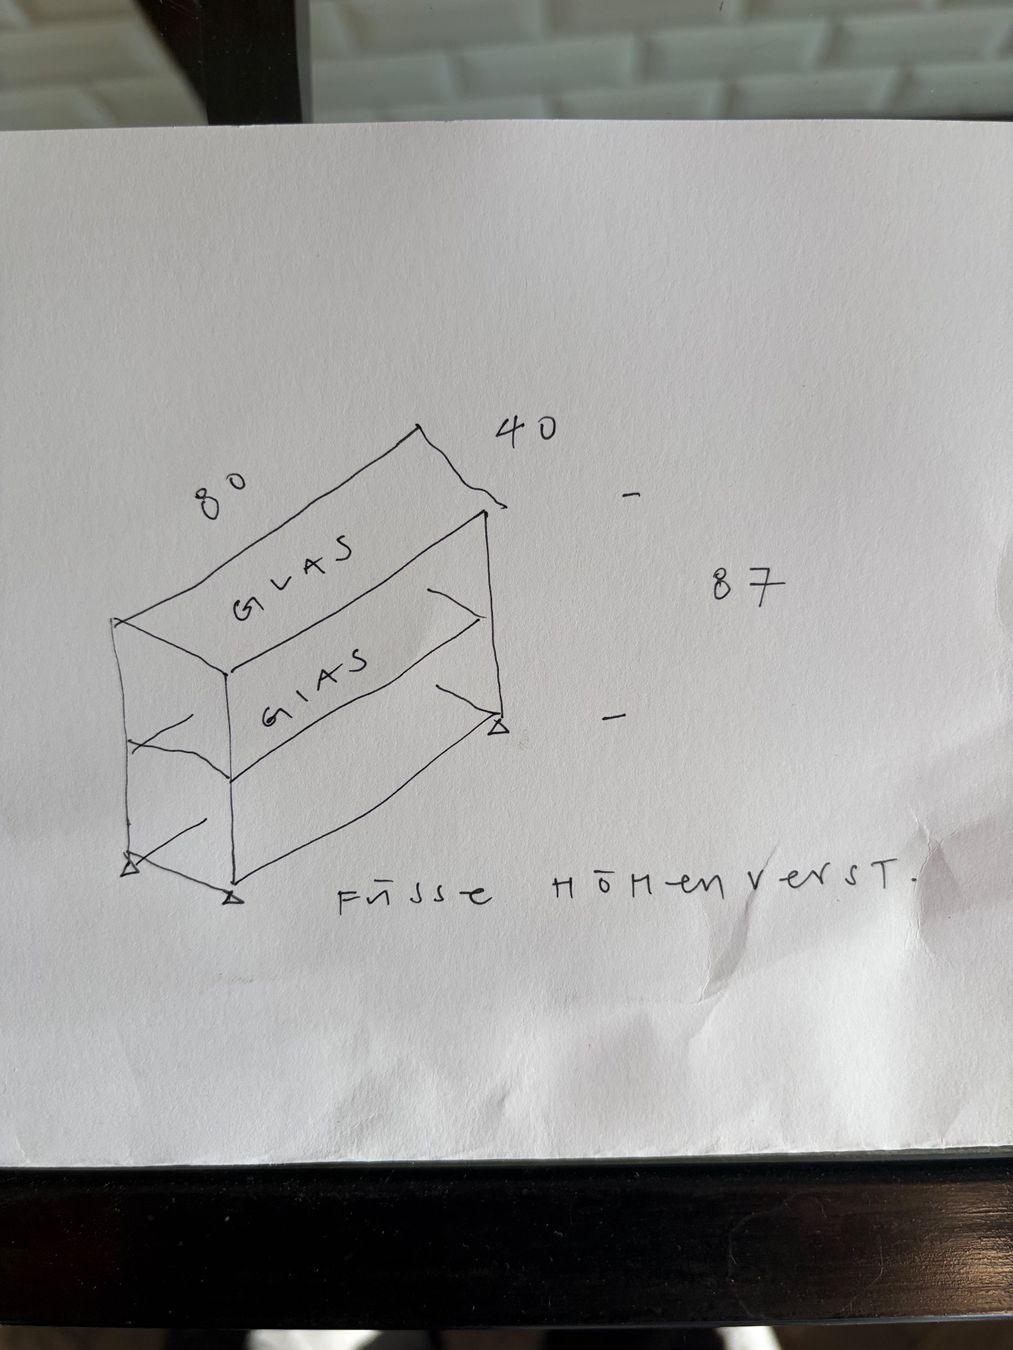 40
80
GLAS
87
GLAS
FÜSSE HÖHENVERST.